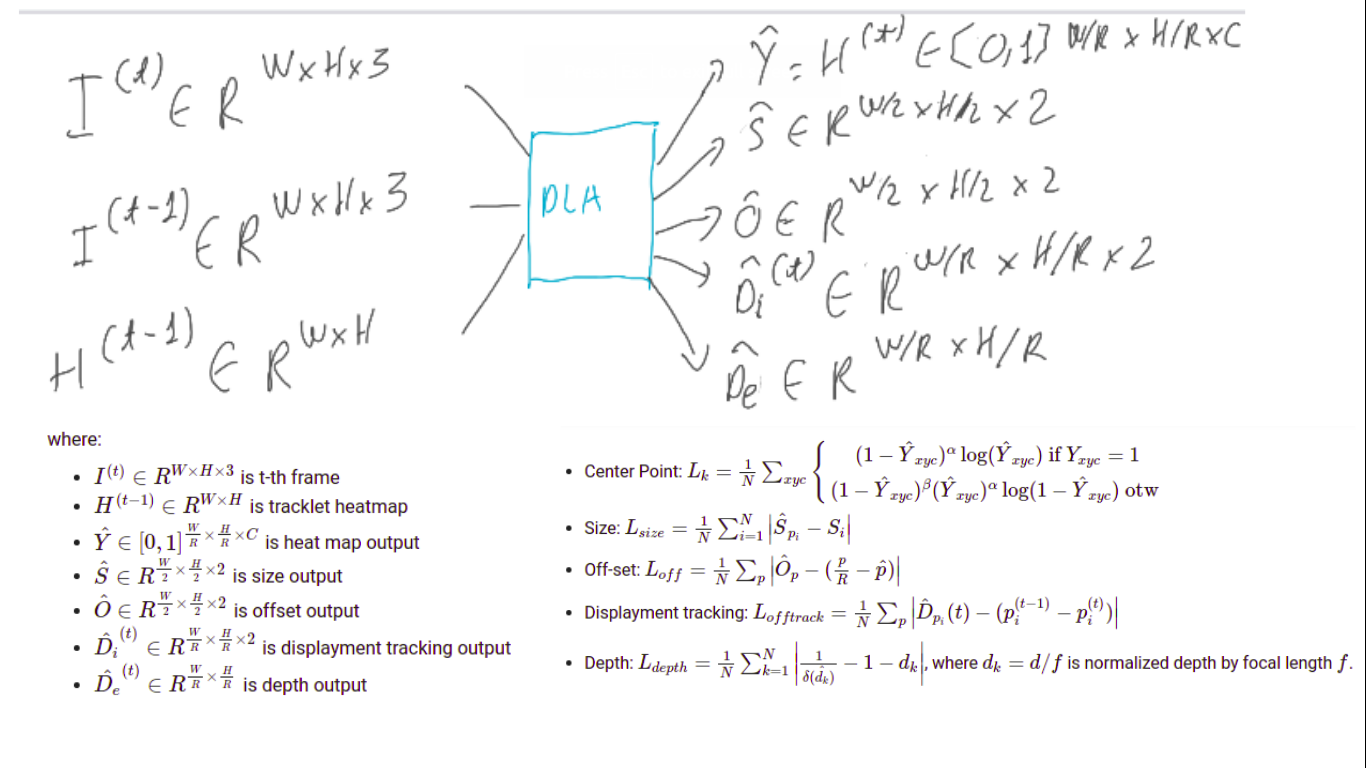 I^(t) ∈ R^W×H×3
I^(t-1) ∈ R^W×H×3
H^(t-1) ∈ R^W×H
DLA
Ŷ = H^(t) ∈ [0,1]^W/R × H/R×C
Ŝ ∈ R^W/2 × H/2 × 2
Ô ∈ R^W/2 × H/2 × 2
D̂_i^(t) ∈ R^W/R × H/R × 2
D̂_e ∈ R^W/R × H/R
where:
• I^(t) ∈ R^W×H×3 is t-th frame
• H^(t−1) ∈ R^W×H is tracklet heatmap
• Ŷ ∈ [0, 1]^(W/R × H/R × C) is heat map output
• Ŝ ∈ R^(W/2 × H/2 × 2) is size output
• Ô ∈ R^(W/2 × H/2 × 2) is offset output
• D̂_i^(t) ∈ R^(W/R × H/R × 2) is displayment tracking output
• D̂_e^(t) ∈ R^(W/R × H/R) is depth output
• Center Point: L_k = 1/N ∑_xyc { (1 − Ŷ_xyc)^α log(Ŷ_xyc) if Y_xyc = 1
(1 − Ŷ_xyc)^β (Ŷ_xyc)^α log(1 − Ŷ_xyc) otw
• Size: L_size = 1/N ∑_{i=1}^N |Ŝ_{p_i} − S_i|
• Off-set: L_off = 1/N ∑_p |Ô_p − (p/R − p̂)|
• Displayment tracking: L_offtrack = 1/N ∑_p |D̂_{p_i}(t) − (p_i^(t−1) − p_i^(t))|
• Depth: L_depth = 1/N ∑_{k=1}^N |1/δ(d̂_k) − 1 − d_k|, where d_k = d/f is normalized depth by focal length f.